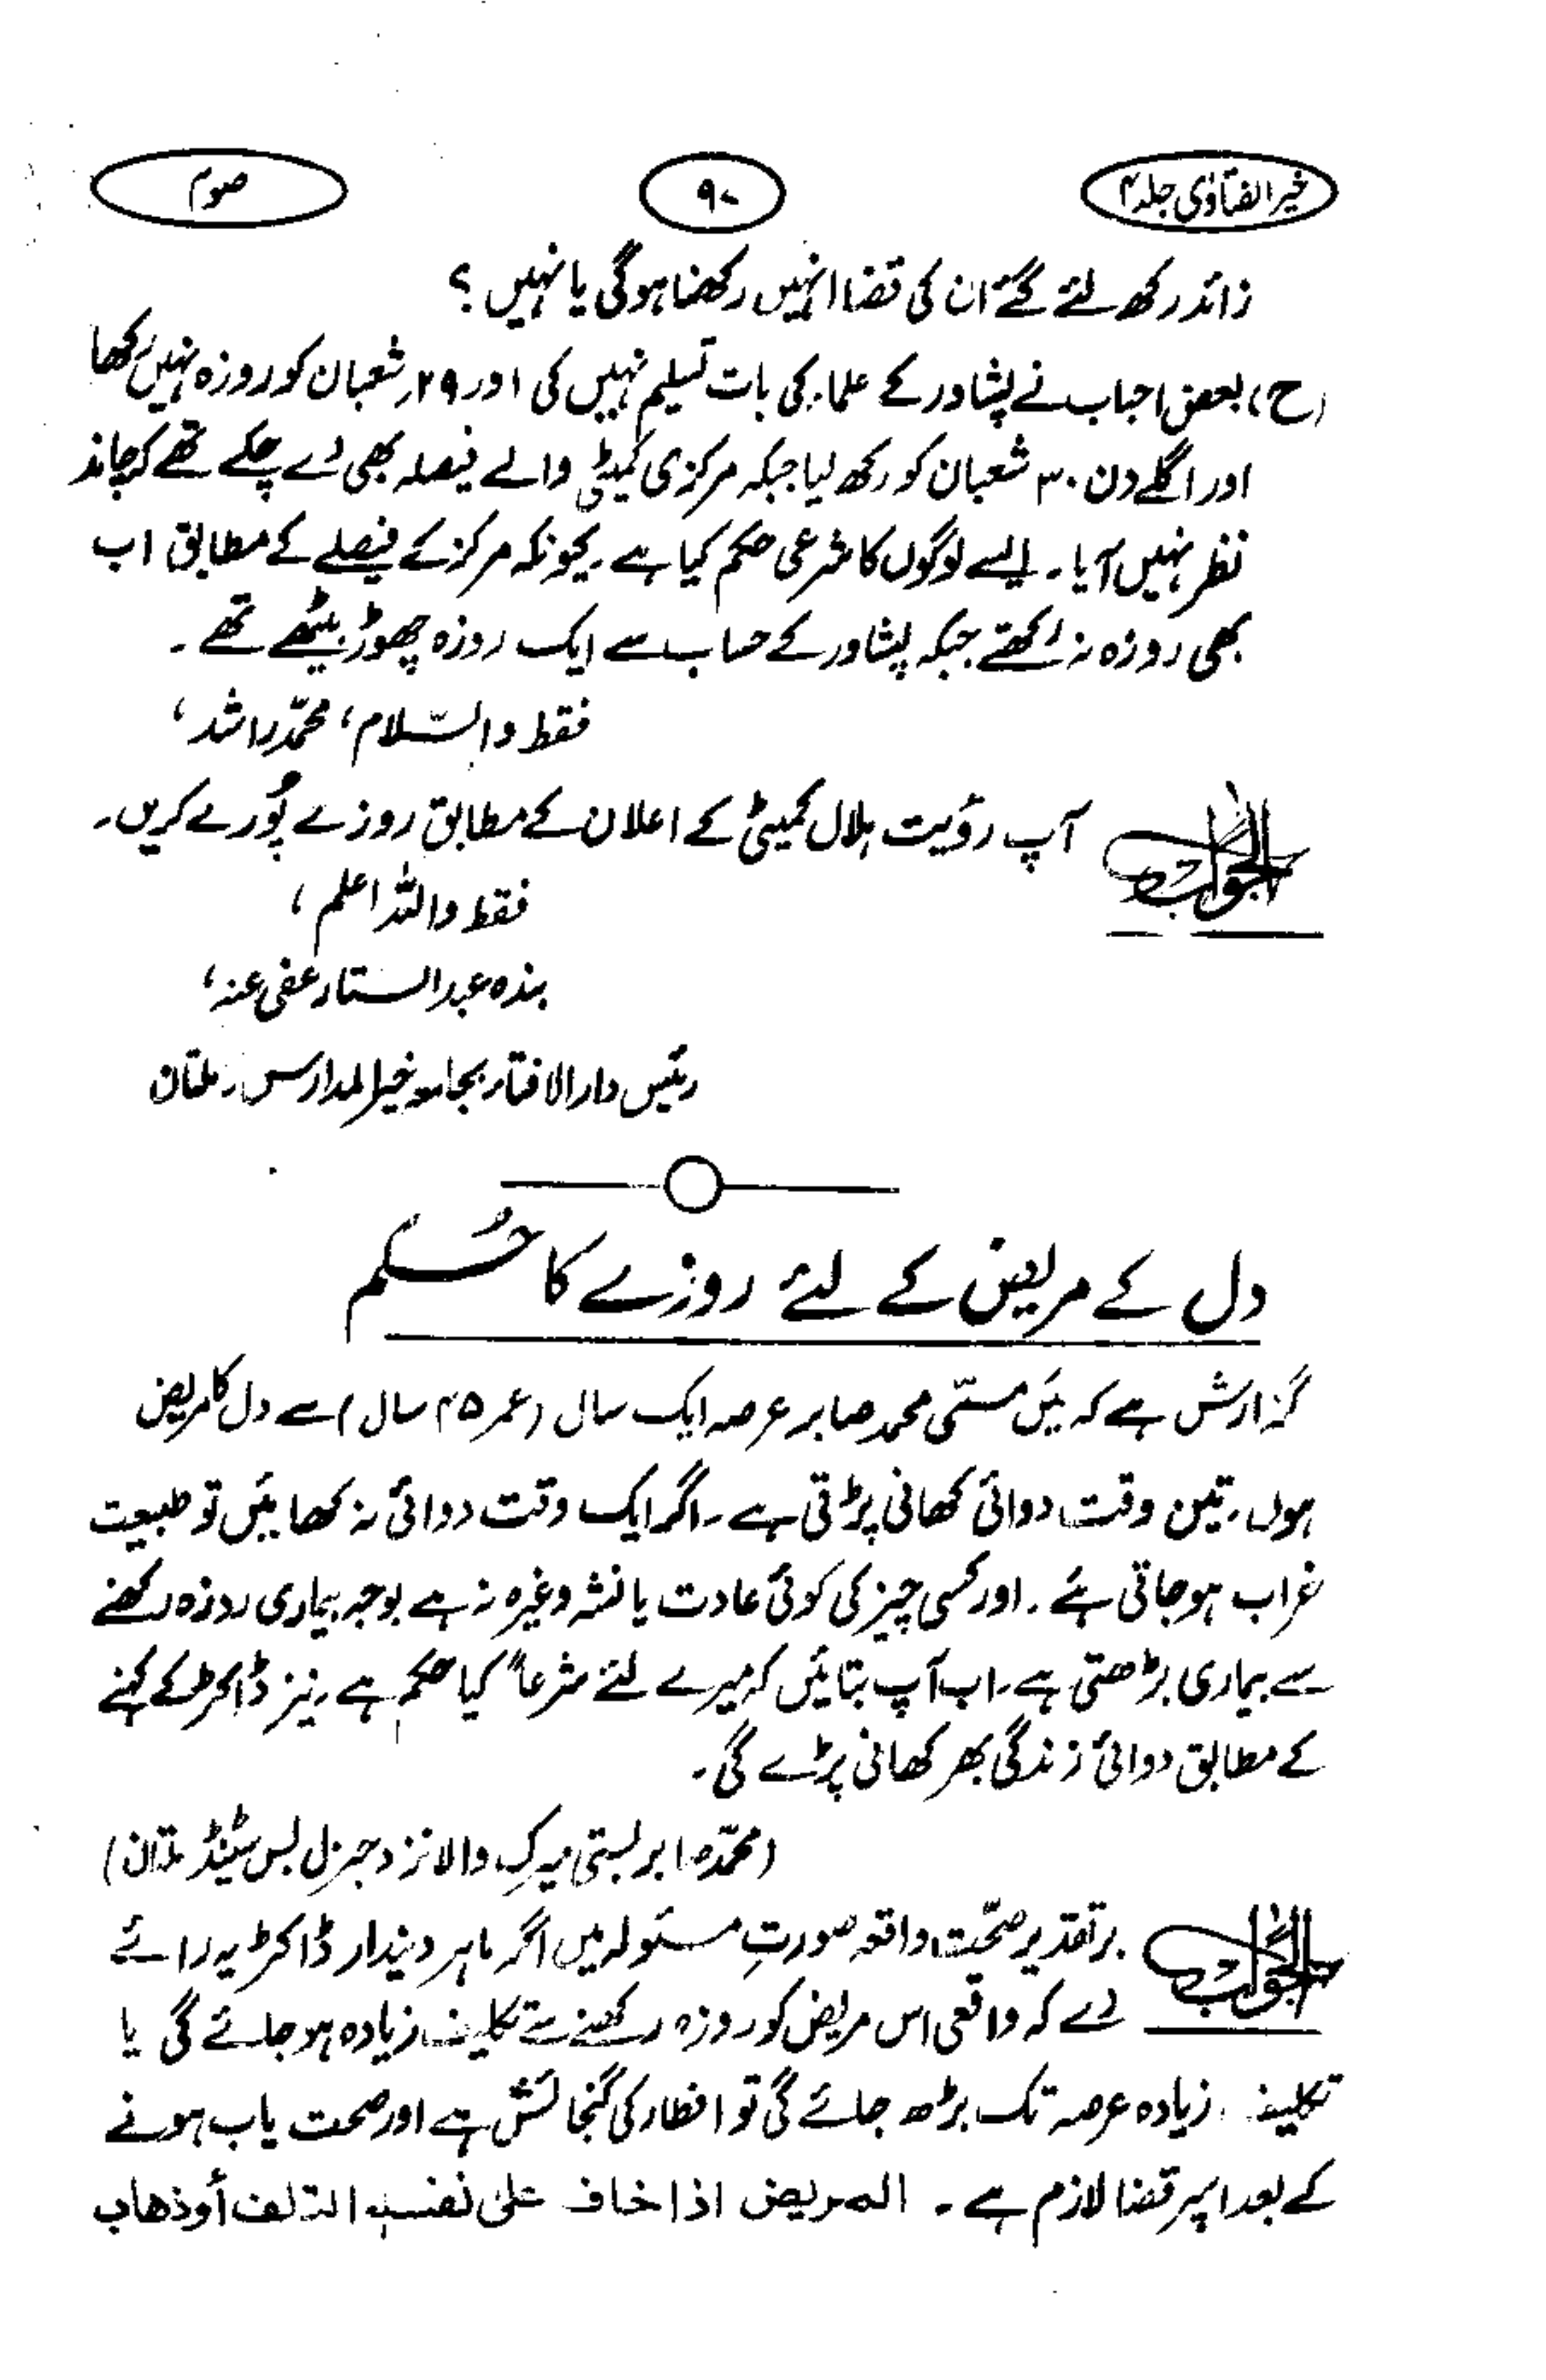 خیر الفتاویٰ جلد ۴
۹۰
صوم
زائد رکھ لئے گئے ان کی قضا انہیں رکھنا ہوگی یا نہیں ؟
(ح) بعض احباب نے پشاور کے علماء کی بات تسلیم نہیں کی اور ۲۹ شعبان کو روزہ نہیں رکھا
اور اگلے دن ۳۰ شعبان کو رکھ لیا جبکہ مرکزی کمیٹی والے فیصلہ بھی دے چکے تھے کہ چاند
نظر نہیں آیا۔ ایسے لوگوں کا شرعی حکم کیا ہے۔ کیونکہ مرکز کے فیصلے کے مطابق اب
بھی روزہ نہ رکھتے جبکہ پشاور کے حساب سے ایک روزہ چھوڑ بیٹھے تھے۔
فقط والسّلام، محمّد راشد،
الجواب
آپ رؤیت ہلال کمیٹی کے اعلان کے مطابق روزے پُورے کریں۔
فقط واللہ اعلم،
بندہ عبدالستار عفی عنہ،
رئیس دارالافتاء جامعہ خیرالمدارس۔ ملتان
دل کے مریض کے لئے روزے کا حُکم
گزارش ہے کہ میَں مسمّی محمد صابر عرصہ ایک سال (عمر ۴۵ سال) سے دل کا مریض
ہوں۔ تین وقت دوائی کھانی پڑتی ہے۔ اگر ایک وقت دوائی نہ کھائیں تو طبیعت
خراب ہوجاتی ہے۔ اور کسی چیز کی کوئی عادت یا نشہ وغیرہ نہ ہے بوجہ بیماری روزہ رکھنے
سے بیماری بڑھتی ہے۔ اب آپ بتائیں کہ میرے لئے شرعاً کیا حکم ہے۔ نیز ڈاکٹر کے کہنے
کے مطابق دوائی زندگی بھر کھانی پڑے گی۔
(محمّد صابر بستی والا نزد جنرل بس سٹینڈ ملتان)
الجواب
برتقدیر صحّت واقعہ صورتِ مسئولہ میں اگر ماہر دیندار ڈاکٹر یہ رائے
دے کہ واقعی اس مریض کو روزہ رکھنے سے تکلیف زیادہ ہوجائے گی یا
تکلیف زیادہ عرصہ تک بڑھ جائے گی تو افطار کی گنجائش ہے اور صحت یاب ہونے
کے بعد اسپر قضا لازم ہے۔ المریض اذا خاف علیٰ نفسہ التلف أو ذھاب